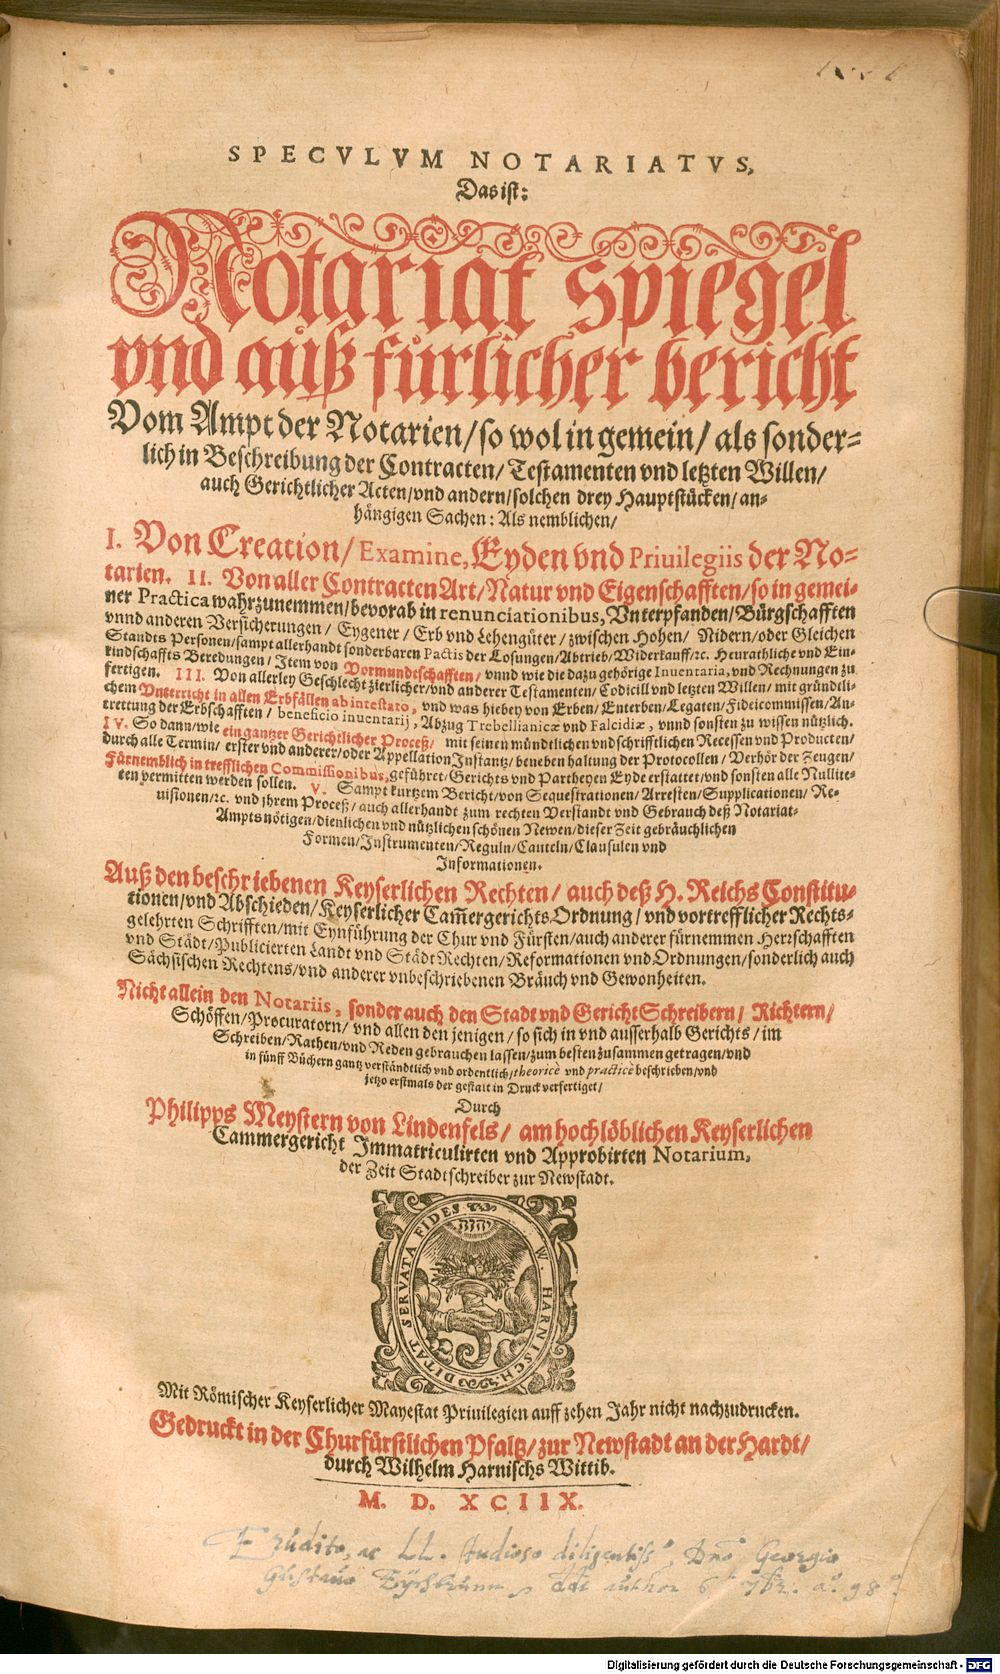 SPECVLVM NOTARIATVS,
Das ist:
Notariat spiegel
vnd auß fürlicher bericht
Vom Ampt der Notarien/ so wol in gemein/ als sonder-
lich in Beschreibung der Contracten/ Testamenten vnd letzten Willen/
auch Gerichtlicher Acten/ vnd andern/ solchen drey Hauptstücken/ an-
hängigen Sachen: Als nemblichen/
I. Von Creation/ Examine, Eyden vnd Priuilegiis der No-
tarien. II. Von aller Contracten Art/ Natur vnd Eigenschafften/ so in gemei-
ner Practica wahrzunemmen/ bevorab in renunciationibus, Vnterpfanden/ Bürgschafften
vnnd anderen Versicherungen/ Eygener/ Erb vnd Lehengüter/ zwischen Hohen/ Nidern/ oder Gleichen
Standts Personen/ sampt allerhandt sonderbaren Pactis der Losungen/ Abtrieb/ Widerkauff/ ꝛc. Heurathliche vnd Ein-
kindschaffts Beredungen/ Item von Vormundtschafften/ vnnd wie die dazu gehörige Inuentaria, vnd Rechnungen zu
fertigen. III. Von allerley Geschlecht zierlicher/ vnd anderer Testamenten/ Codicill vnd letzten Willen/ mit gründtli-
chem Vnterricht in allen Erbfällen ab intestato, vnd was hiebey von Erben/ Enterben/ Legaten/ Fideicommissen/ An-
trettung der Erbschafften/ beneficio inuentarij, Abzug Trebellianicæ vnd Falcidiæ, vnnd sonsten zu wissen nützlich.
IV. So dann/ wie ein gantzer Gerichtlicher Proceß/ mit seinen mündtlichen vnd schrifftlichen Recessen vnd Producten/
durch alle Termin/ erster vnd anderer/ oder Appellation Instantz/ beneben haltung der Protocollen/ Verhör der Zeugen/
Fürnemblich in trefflichen Commissionibus, geführet/ Gerichts vnd Partheyen Eyde erstattet/ vnd sonsten alle Nullite-
ten vermitten werden sollen. V. Sampt kurtzem Bericht/ von Sequestrationen/ Arresten/ Supplicationen/ Re-
uisionen/ ꝛc. vnd jhrem Proceß/ auch allerhandt zum rechten Verstandt vnd Gebrauch deß Notariat-
Ampts nötigen/ dienlichen vnd nützlichen schönen Newen/ dieser Zeit gebräuchlichen
Formen/ Instrumenten/ Reguln/ Cauteln/ Clausulen vnd
Informationen.
Auß den beschriebenen Keyserlichen Rechten/ auch deß H. Reichs Constitu-
tionen/ vnd Abschieden/ Keyserlicher Cam̃ergerichts Ordnung/ vnd vortrefflicher Rechts-
gelehrten Schrifften/ mit Eynführung der Chur vnd Fürsten/ auch anderer fürnemmen Herrschafften
vnd Städt/ Publicierten Landt vnd Städt Rechten/ Reformationen vnd Ordnungen/ sonderlich auch
Sächsischen Rechtens/ vnd anderer vnbeschriebenen Bräuch vnd Gewonheiten.
Nicht allein den Notariis, sonder auch den Stadt vnd Gericht Schreibern/ Richtern/
Schöffen/ Procuratorn/ vnd allen den jenigen/ so sich in vnd ausserhalb Gerichts/ im
Schreiben/ Rathen/ vnd Reden gebrauchen lassen/ zum besten zusammen getragen/ vnd
in fünff Büchern gantz verständtlich vnd ordentlich/ theoricè vnd practicè beschrieben/ vnd
jetzo erstmals der gestalt in Druck verfertiget/
Durch
Philipps Meystern von Lindenfels/ am hochlöblichen Keyserlichen
Cammergericht Immatriculirten vnd Approbirten Notarium,
der Zeit Stadtschreiber zur Newstadt.
W. HARNISCH DITAT SERVATA FIDES
Mit Römischer Keyserlicher Mayestat Priuilegien auff zehen Jahr nicht nachzudrucken.
Gedruckt in der Churfürstlichen Pfaltz/ zur Newstadt an der Hardt/
durch Wilhelm Harnischs Wittib.
M. D. XCIIX.
Erudito, ac LL. studioso diligentiss°, Dño Georgio
Gustavo ddt author 6 7br. a° 98°.
Digitalisierung gefördert durch die Deutsche Forschungsgemeinschaft - DFG